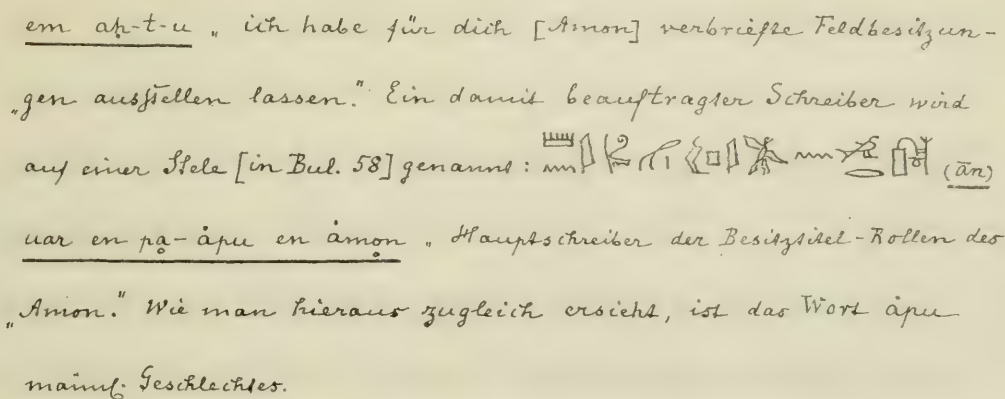 em aḥ-t-u „ich habe für dich [Amon] verbriefte Feldbesitzun-
„gen ausstellen lassen.“ Ein damit beauftragter Schreiber wird
auf einer Stele [in Bul. 58] genannt: (ān)
uar en pa-åpu en åmon „Hauptschreiber der Besitztitel-Rollen des
„Amon.“ Wie man hieraus zugleich ersieht, ist das Wort åpu
männl. Geschlechtes.